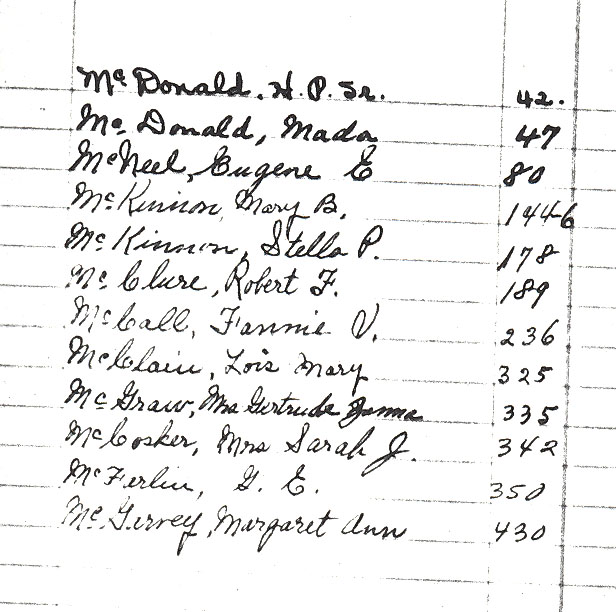 McDonald, H. P. Sr. 42.
McDonald, Mada 47
McNeel, Eugene E 80
McKinnon, Mary B. 1446
McKinnon, Stella P. 178
McClure, Robert F. 189
McCall, Fannie V. 236
McClain, Lois Mary 325
McGraw, Mrs Gertrude 335
McCosker, Mrs Sarah J. 342
McFerlin, G. E. 350
McGirvey, Margaret Ann 430